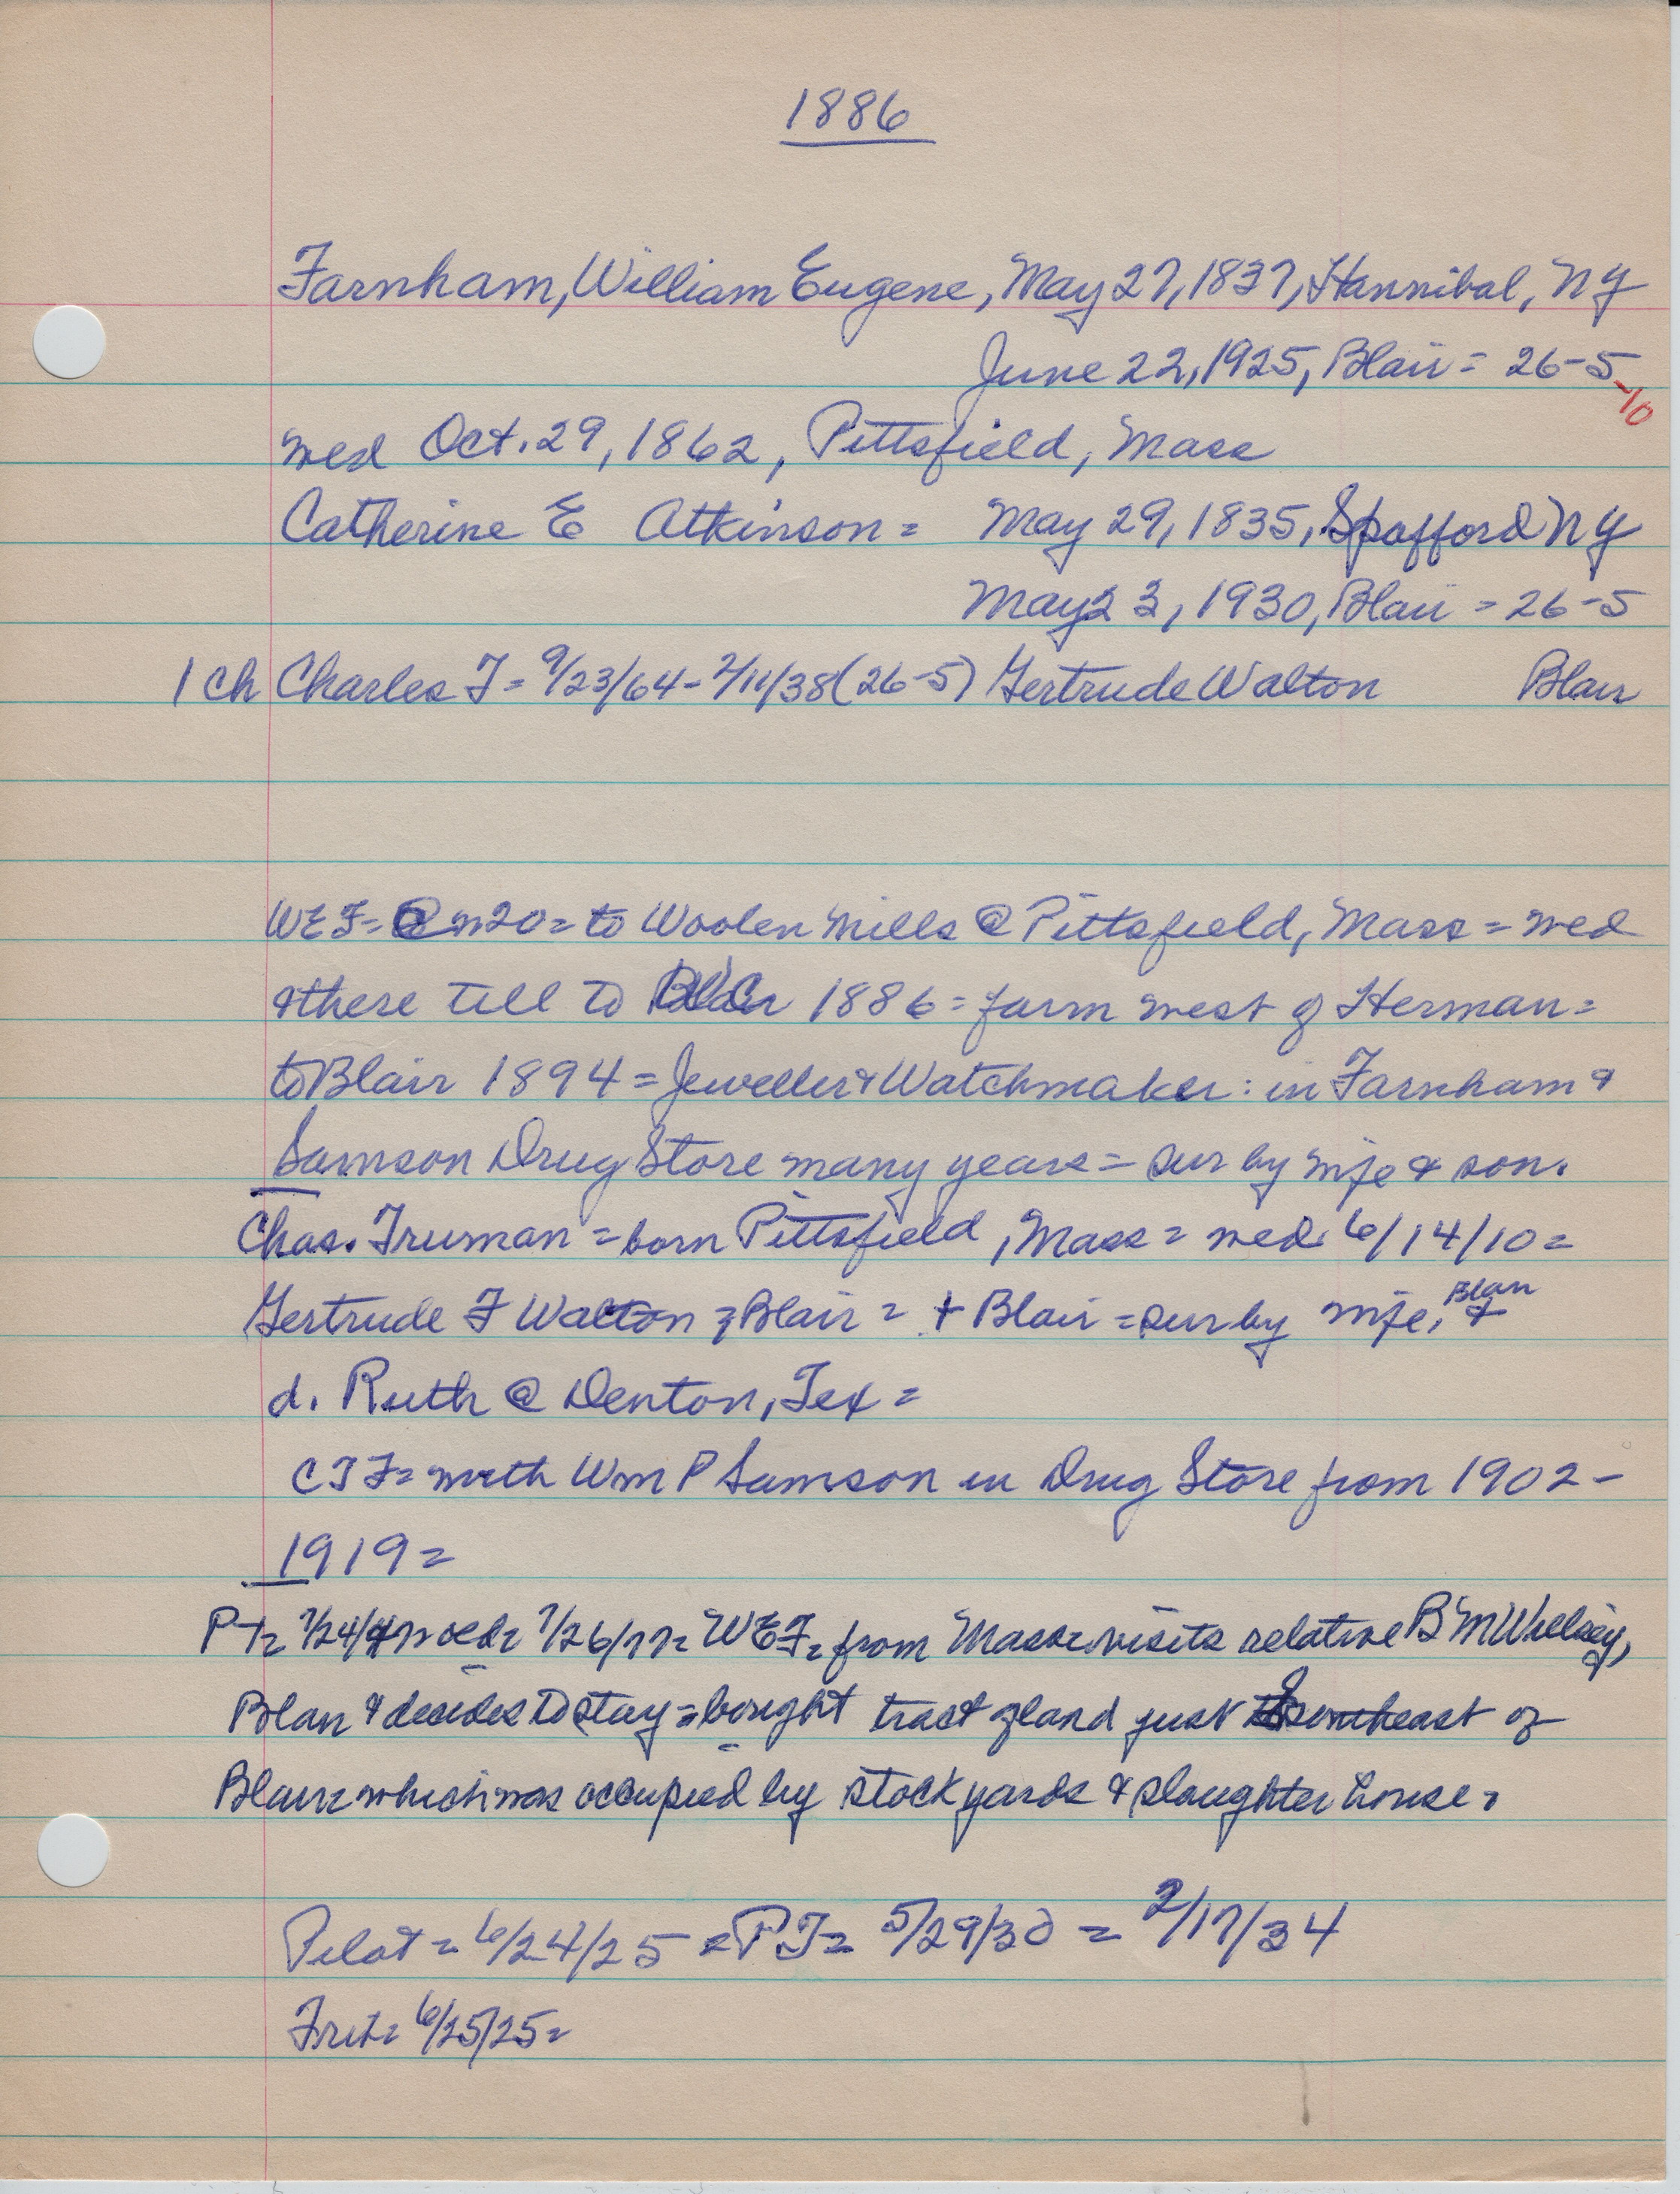 1886
Farnham, William Eugene, May 27, 1837, Hannibal, NY
June 22, 1925, Blair = 26-5
-10
wed Oct. 29, 1862, Pittsfield, Mass
Catherine E Atkinson = May 29, 1835, Spafford NY
May 23, 1930, Blair = 26-5
1 ch Charles T = 9/23/64 - 2/11/38 (26-5) Gertrude Walton Blair
WEF = @ 20 = to Woolen Mills @ Pittsfield, Mass = wed
& there till to Blair 1886 = farm west of Herman =
to Blair 1894 = Jeweller & Watchmaker : in Farnham &
Samson Drug Store many years = sur by wife & son.
Chas. Truman = born Pittsfield, Mass = wed 6/14/10 =
Gertrude F Walton of Blair = + Blair = sur by wife, Blair &
d. Ruth @ Denton, Tex =
CTF = with Wm P Samson in Drug Store from 1902 -
1919 =
PT = 7/26/77 = WEF = from Mass = visits relative B M
Blair & decides to stay = bought tract of land just Southeast of
Blair = which was occupied by stock yards & slaughter house =
Pilot = 6/24/25 = PT = 5/29/30 = 2/17/34
6/25/25 =